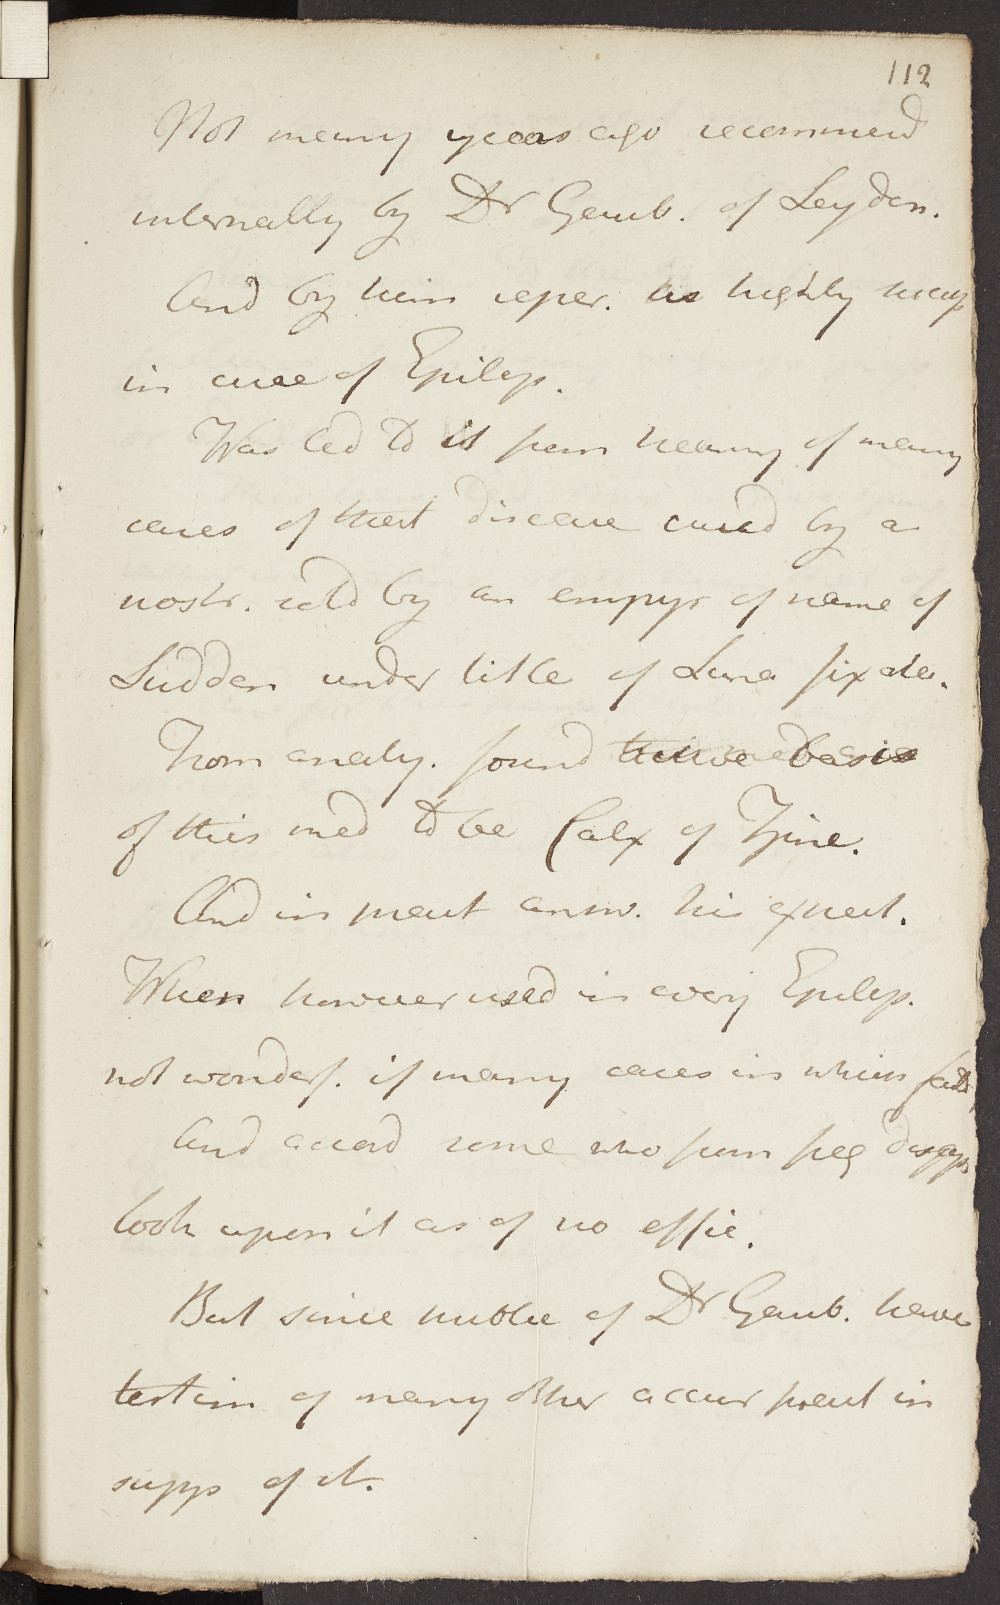 112
Not many years ago recommend
internally by Dr Gaub. of Leyden.
And by him repor. as highly succesf
in cure of Epilep.
Was led to it from hearing of many
cases of that disease cured by a
nostr. sold by an empyr of name of
Ludden under title of Luna fixata.
From analy. found the basis
of this med to be Calx of Zinc.
And in pract answ. his expect.
When however used in every Epilep.
not wonderf. if many cases in which fails
And accord some who from freq disapp
look upon it as of no effic.
But since public of Dr Gaub. have
testim of many other accur pract in
supp of it.